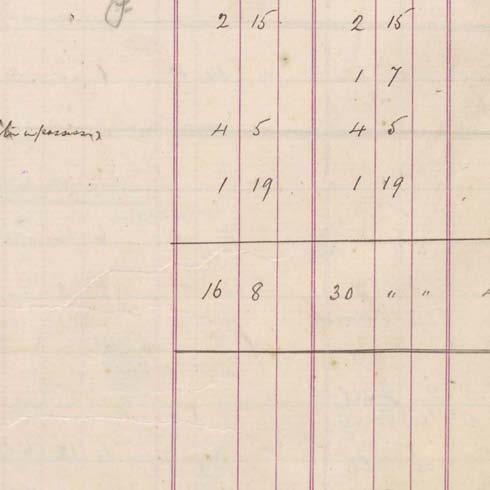 2 15 2 15
1 7
4 5 4 5
1 19 1 19
16 8 30 " "